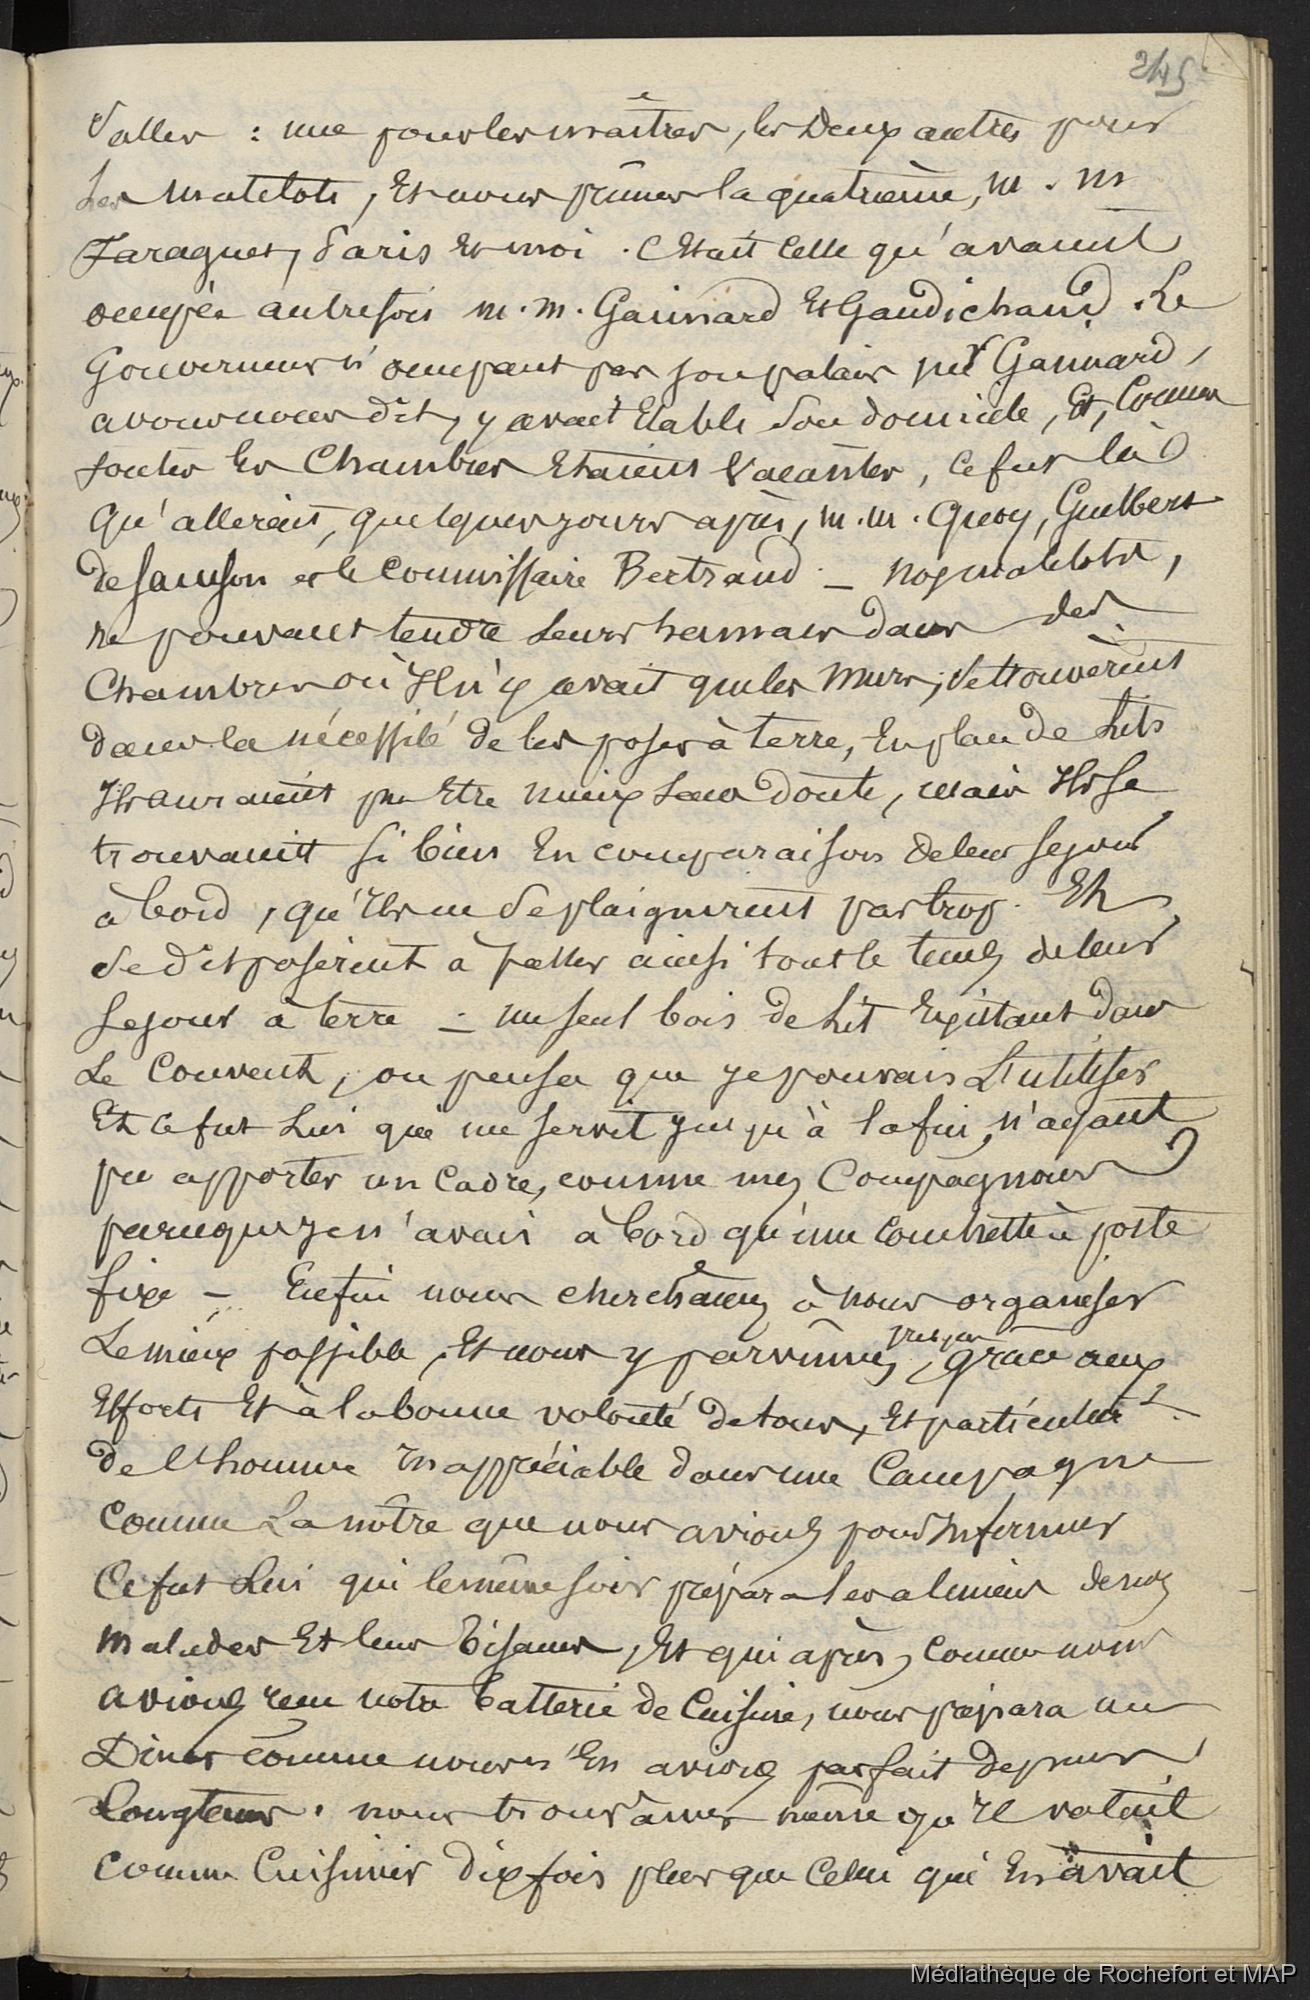 245
Salles : une pour les maîtres, les Deux autres pour
Les matelots, Et nous prîmes la quatrième, m. m
Faraguet, Paris Et moi. C'Etait celle qu'avaient
occupée autrefois m. m. Gaimard Et Gaudichaud. Le
Gouverneur n'occupant pas son palais Mr Gaimard,
avons nous dit, y avait Etabli Son domicile, Et, Comme
toutes les Chambres Etaient Vacantes, ce fut là
qu'allèrent, quelques jours après, m. m. Quoy, Guilbert
de Sainson et le Commissaire Bertrand — nos matelots,
ne pouvant tendre leurs hamacs dans des
Chambres où Il n'y avait que les murs, Se trouvèrent
dans la nécessité de les poser à terre, En plan de Lits
Ils auraient pu Etre mieux sans doute, mais Ils se
trouvaient si bien En comparaison de leur sejour
à bord, qu'Ils ne Se plaignirent pas trop. Et
Se disposèrent à passer ainsi tout le tems de leur
sejour à terre — un seul bois de Lit Existant dans
Le Couvent, on pensa que je pouvais L'utiliser
Et ce fut Lui qui me servit jusqu'à la fin, n'ayant
pu apporter un Cadre, comme mes Compagnons
parceque je n'avais à bord qu'une couchette à poste
fixe — Enfin nous cherchâmes à nous organiser
Le mieux possible, Et nous y parvînmes presque, grâce aux
Efforts Et à la bonne volonté de tous, Et particulièrt
de l'homme Inappréciable dans une Campagne
Comme La nôtre que nous avions pour Infirmier
Ce fut Lui qui le même soir prépara les alimens de nos
Malades Et leurs Tisanes, Et qui après, comme nous
avions reçu notre batterie de Cuisine, nous prépara un
Diner comme nous n'En avions pas fait depuis
Longtems. nous trouvâmes même qu'Il valait
comme Cuisinier dix fois plus que Celui qui En avait
Médiathèque de Rochefort et MAP